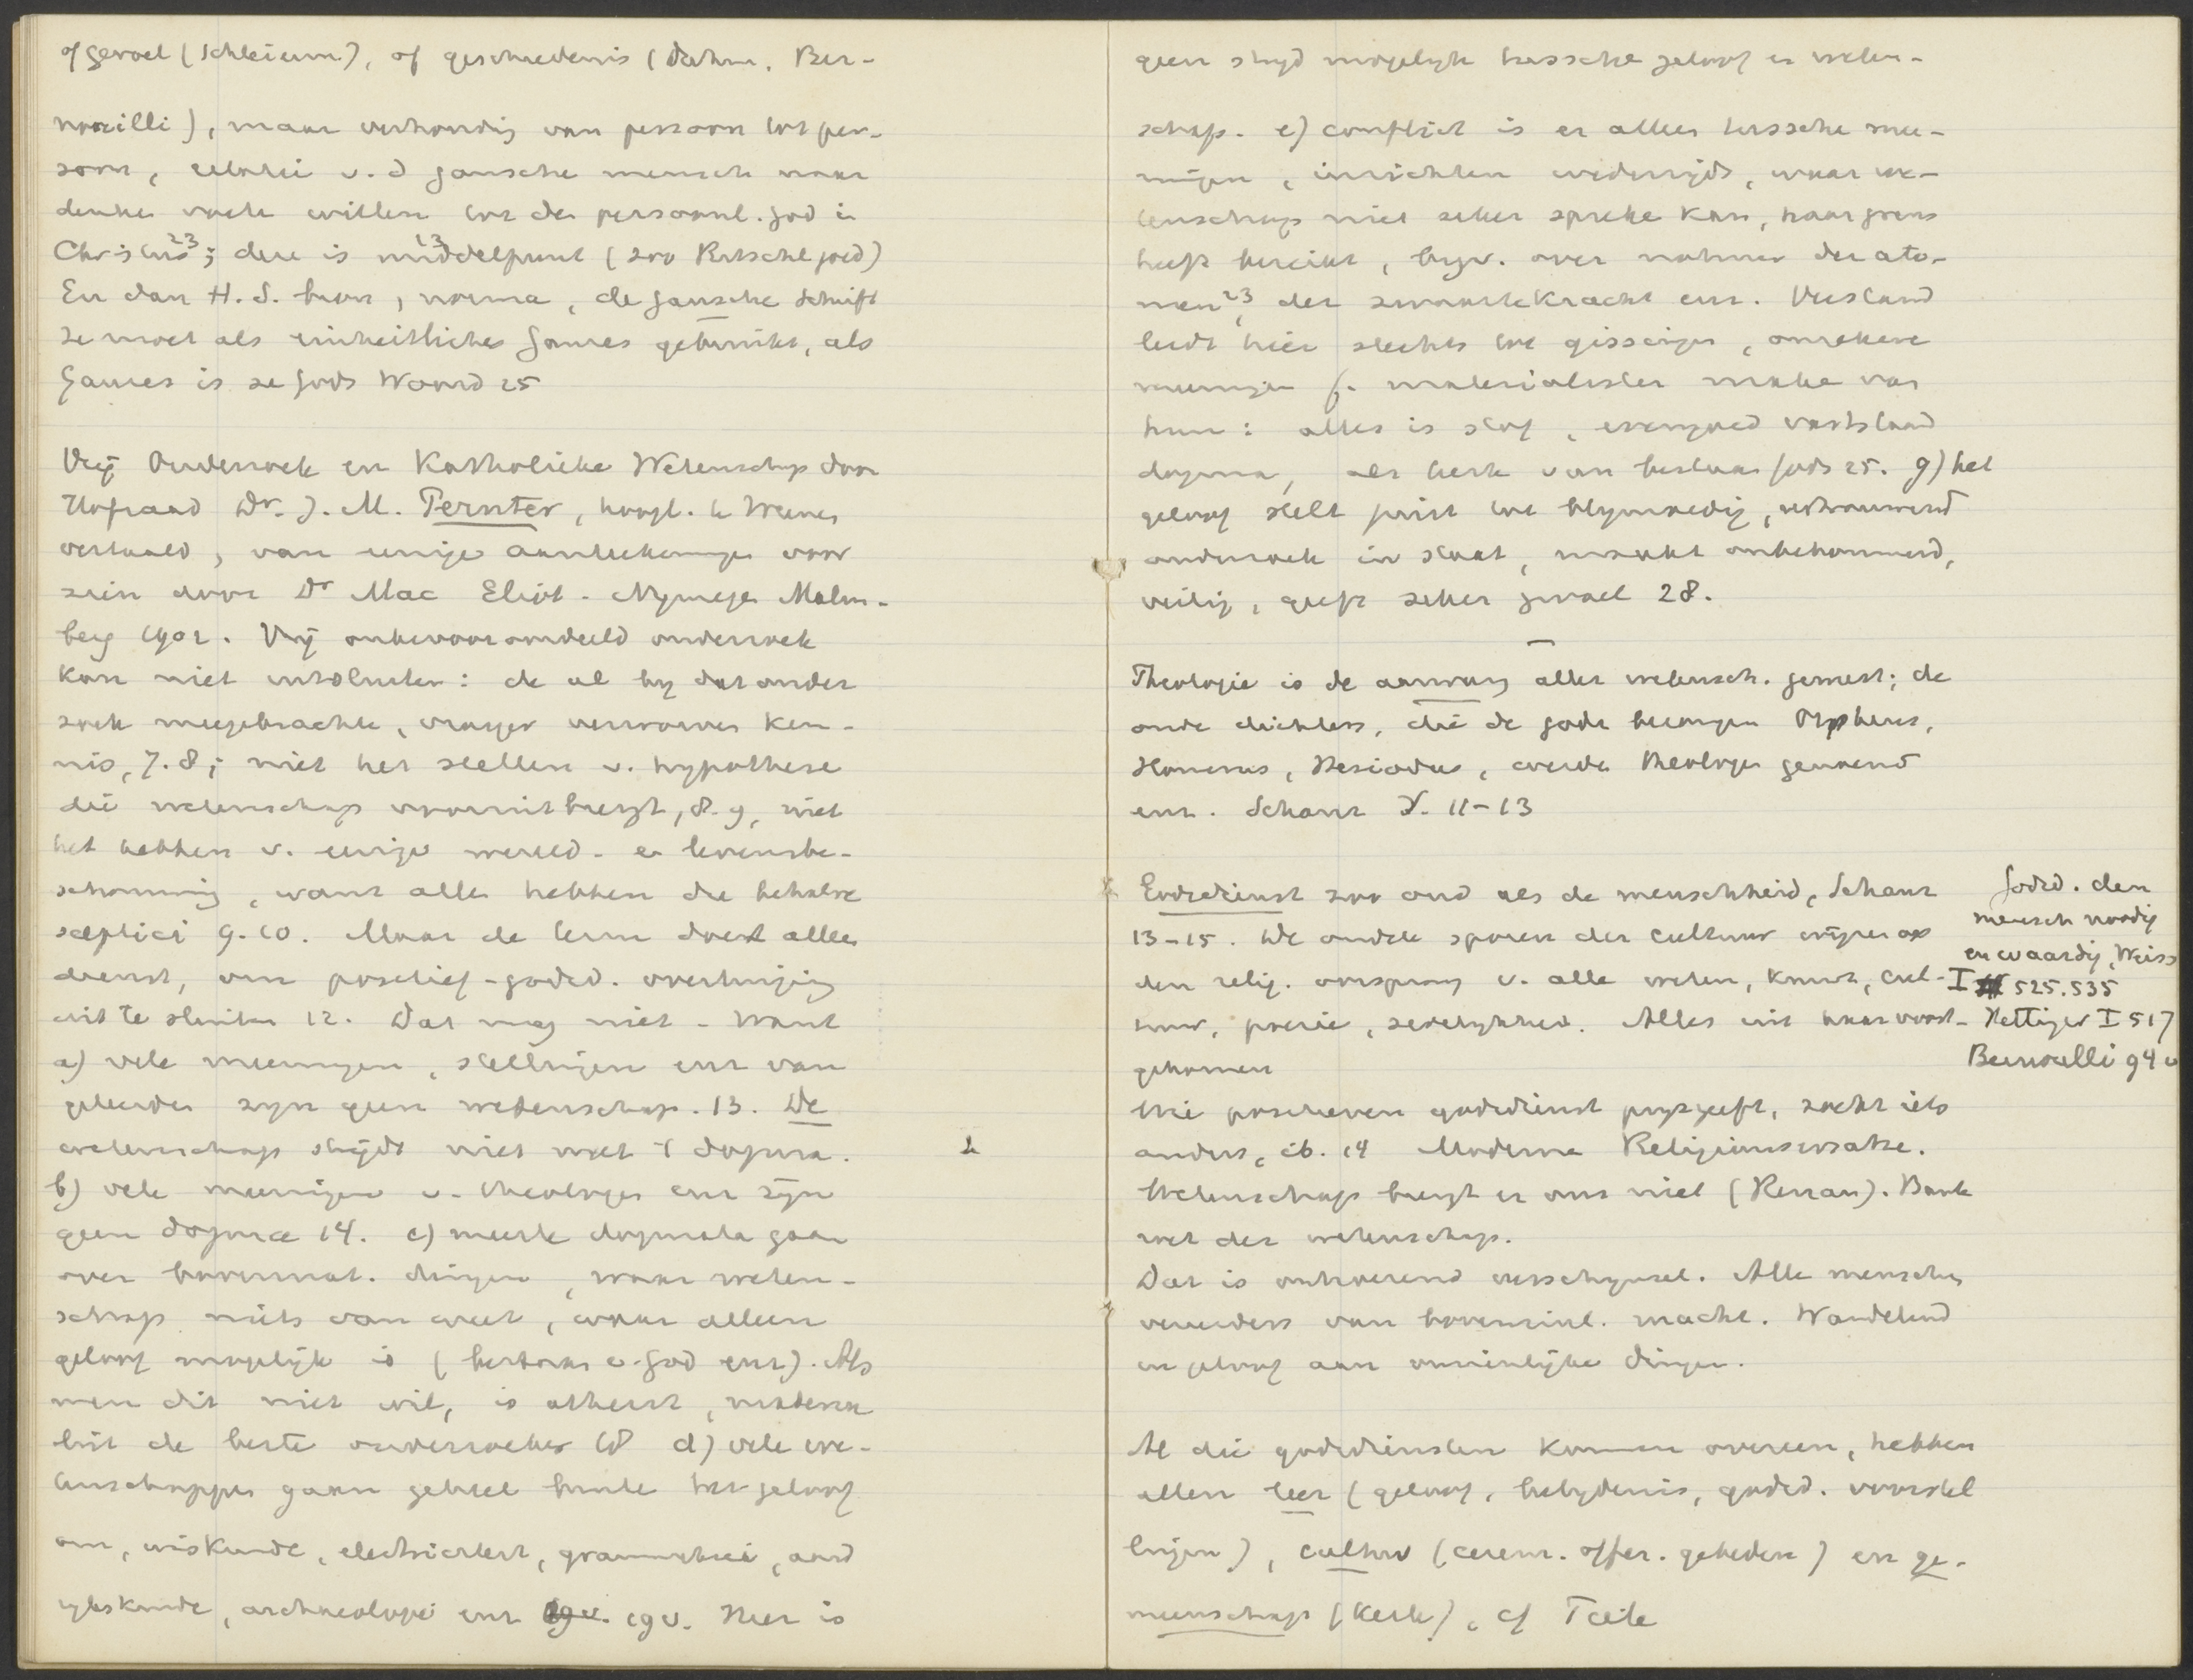 of gevoel (Schleierm.), of geschiedenis (Dahm, Ber-
nouilli), maar verhouding van persoon tot per-
soon, relatie v. d gansche mensch naar
denken voelen willen tot den persoonl. God in
Christus 23; deze is middelpunt 23 (zoo Ritschl goed)
En dan H. S. bron, norma, de gansche Schrift
ze moet als einheitliches Ganzes gebruikt, als
Ganzes is ze Gods Woord 25
Vrij Onderzoek en Katholieke Wetenschap door
Hofraad Dr. J. M. Pernter, hoogl. te Weenen
vertaald, van eenige aanteekeningen voor
zien door Dr Mac Eliot - Nijmegen Malm-
berg 1902. Vrij onbevooroordeeld onderzoek
kan niet uitsluiten: de al bij dat onder
zoek meegebrachte, vroeger verworven ken-
nis, 7.8; niet het stellen v. hypothese
die wetenschap vooruitbrengt, 8.9, niet
het hebben v. eenige wereld- en levensbe-
schouwing, want allen hebben die behalve
sceptici 9.10. Maar de term doet alleen
dienst, om positief-godsd. overtuiging
uit te sluiten 12. Dat mag niet - want
a) vele meeningen, stellingen enz van
geleerden zijn geen wetenschap. 13. De
wetenschap strijdt niet met 't dogma.
b) vele meeningen v. theologen enz zijn
geen dogma 14. c) meeste dogmata gaan
over bovennat. dingen, waar weten-
schap niets van weet, waar alleen
geloof mogelijk is (bestaan v. God enz). Als
men dit niet wil, is atheist,
de beste onderzoeker 18 d) vele we-
tenschappen gaan geheel buiten het geloof
om, wiskunde, electriciteit, grammatica, aard
rijkskunde, archaeologie enz 19v. Hier is
geen strijd mogelijk tussche geloof en weten-
schap. e) conflict is er alleen tussche mee-
ningen, inzichten wederzijds, waar we-
tenschap niet zeker spreke kan, haar grens
heeft bereikt, bijv. over natuur der ato-
men 23, der zwaartekracht enz. Verstand
leidt hier slechts tot gissingen, onzekere
meeningen f. materialisten maken van
hun: alles is stof, evengoed vaststaand
dogma, als kerk van bestaan Gods 25. g) het
geloof stelt juist tot blijmoedig, vertrouwend
onderzoek in staat, maakt onbekommerd,
veilig, geeft zeker gevoel 28.
Theologie is de aanvang aller wetensch. geweest; de
oude dichters, die de goden bezongen Orpheus,
Homerus, Hesiodus, werden theologen genoemd
enz. Schanz S. 11-13
Godsdienst zoo oud als de menschheid, Schanz
13-15. De oudste sporen der cultuur wijzen op
den relig. oorsprong v. alle weten, kunst, cul-
tuur, poezie, zedelijkheid. Alles uit haar voort-
gekomen
Godsd. den
mensch noodig
en waardig, Weiss
I 525.535
Hettinger I 517
Bernoulli 94 v
Wie positieven godsdienst prijsgeeft, zoekt iets
anders, ib. 14 Moderne Religionsersatze.
Wetenschap brengt er ons niet (Renan). Bank
rot der wetenschap.
Dat is ontroerend verschijnsel. Alle menschen
vereerders van bovenzinl. macht. Wandelend
in geloof aan onzienlijke dingen.
Al die godsdiensten komen overeen, hebben
allen leer (geloof, belijdenis, godsd. voorstel
lingen), cultus (cerem. offer. gebeden) en ge-
meenschap (kerk), cf Tiele